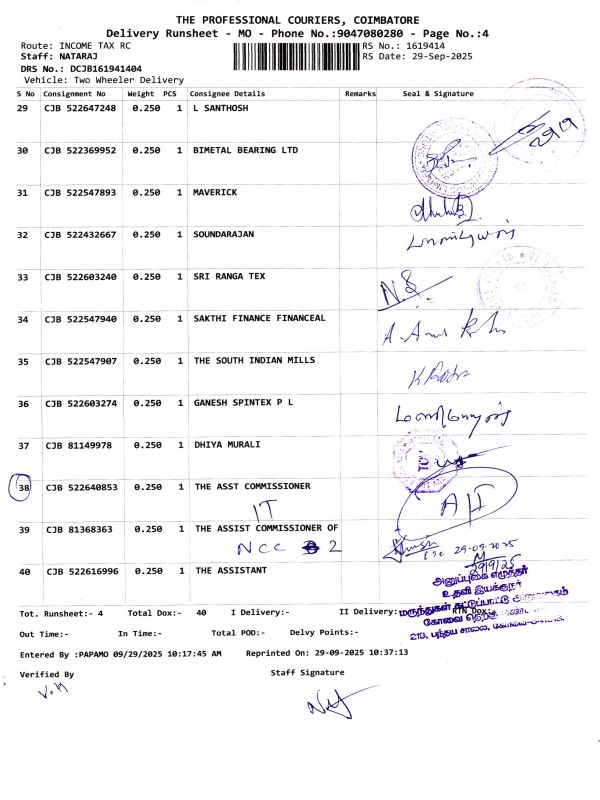 THE PROFESSIONAL COURIERS, COIMBATORE
Delivery Runsheet - MO - Phone No.:9047080280 - Page No.:4
Route: INCOME TAX RC RS No.: 1619414
Staff: NATARAJ RS Date: 29-Sep-2025
DRS No.: DCJB161941404
Vehicle: Two Wheeler Delivery
S No Consignment No Weight PCS Consignee Details Remarks Seal & Signature
29 CJB 522647248 0.250 1 L SANTHOSH
29/9
30 CJB 522369952 0.250 1 BIMETAL BEARING LTD
31 CJB 522547893 0.250 1 MAVERICK
32 CJB 522432667 0.250 1 SOUNDARAJAN
33 CJB 522603240 0.250 1 SRI RANGA TEX
34 CJB 522547940 0.250 1 SAKTHI FINANCE FINANCEAL
35 CJB 522547907 0.250 1 THE SOUTH INDIAN MILLS
36 CJB 522603274 0.250 1 GANESH SPINTEX P L
37 CJB 81149978 0.250 1 DHIYA MURALI
38 CJB 522640853 0.250 1 THE ASST COMMISSIONER
IT
39 CJB 81368363 0.250 1 THE ASSIST COMMISSIONER OF
NCC 2 29-09-2025
29/9/25
40 CJB 522616996 0.250 1 THE ASSISTANT
அனுப்புகை எழுத்தர்
உதவி இயக்குநர்
மருந்துகள் கட்டுப்பாட்டு
கோவை
219, பந்தய சாலை,
Tot. Runsheet:- 4 Total Dox:- 40 I Delivery:- II Delivery: RTN Dox:-
Out Time:- In Time:- Total POD:- Delvy Points:-
Entered By :PAPAMO 09/29/2025 10:17:45 AM Reprinted On: 29-09-2025 10:37:13
Verified By Staff Signature